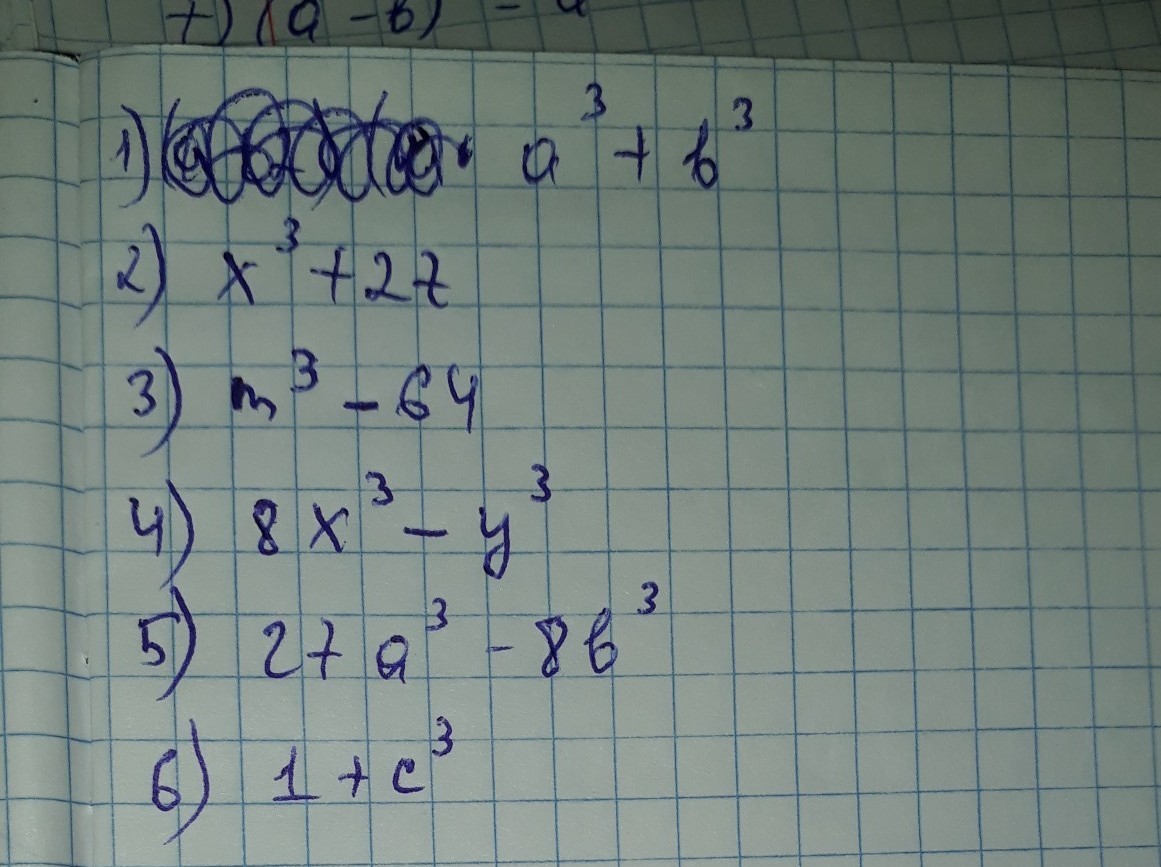 1) a³ + b³
2) x³ + 27
3) m³ - 64
4) 8x³ - y³
5) 27a³ - 8b³
6) 1 + c³